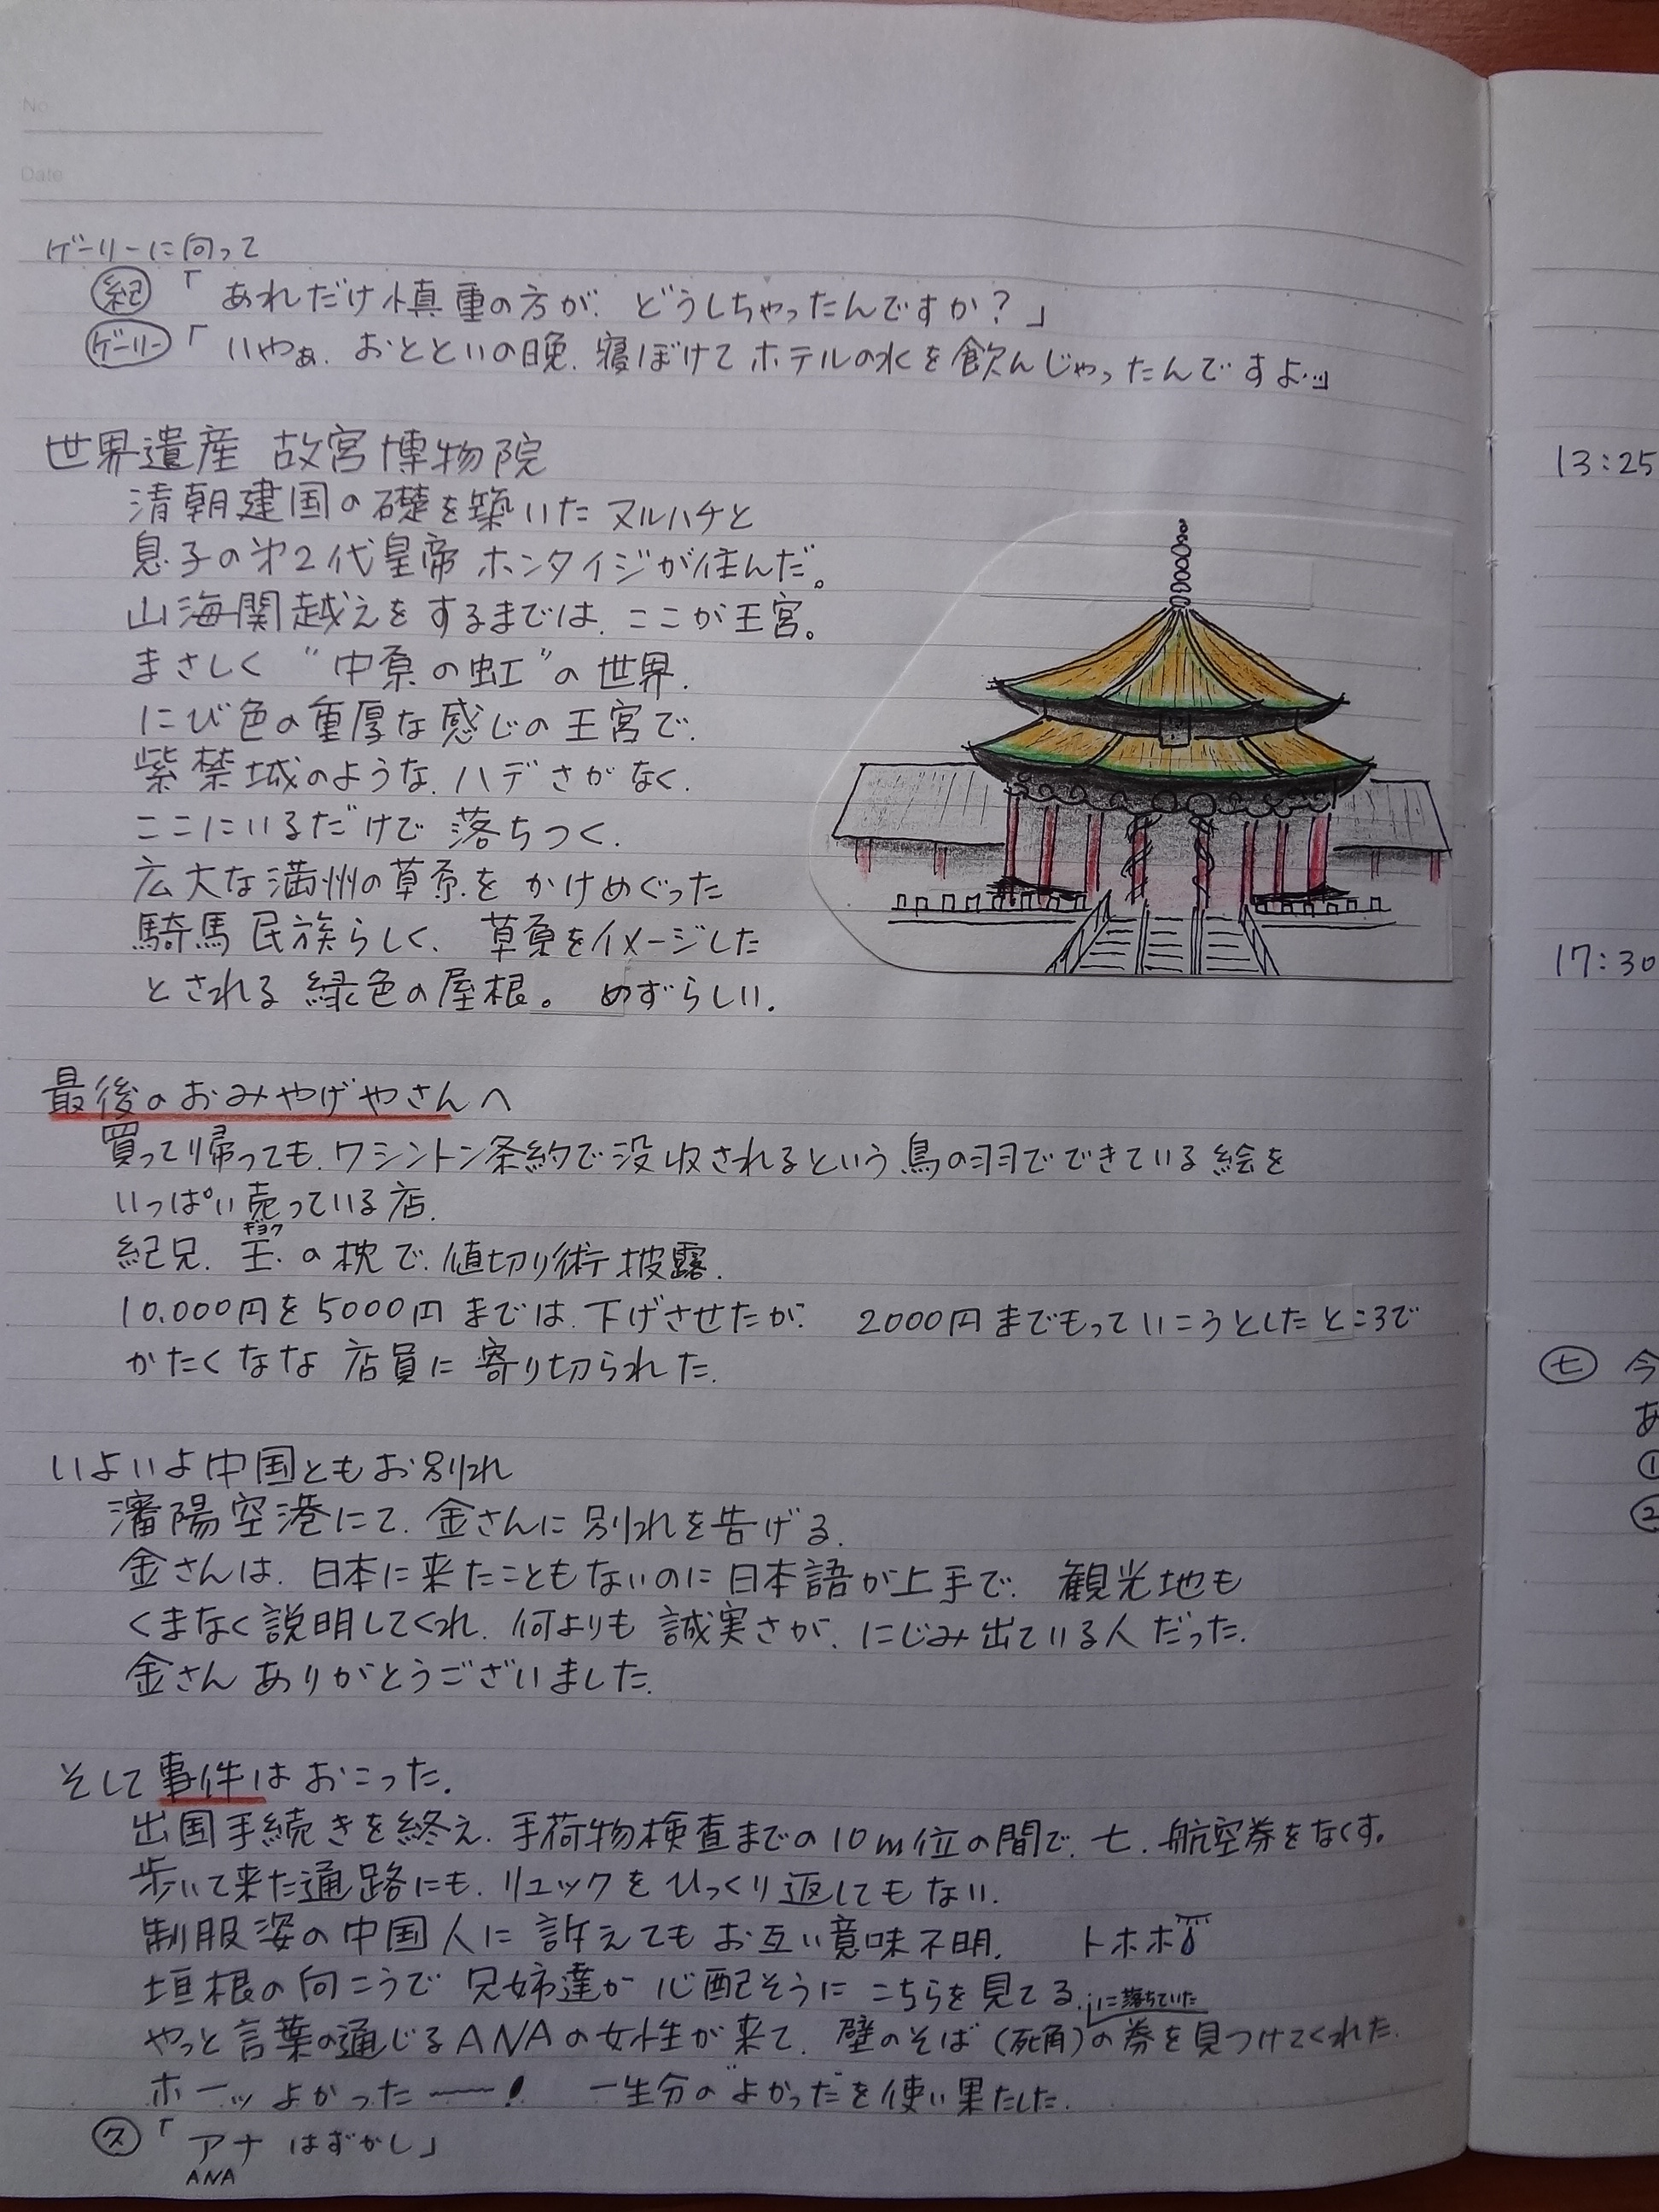 No.
Date
ゲーリーに向って
紀「あれだけ慎重の方が、どうしちゃったんですか？」
ゲーリー「いやぁ、おとといの晩、寝ぼけてホテルの水を飲んじゃったんですよ…」
世界遺産 故宮博物院
清朝建国の礎を築いたヌルハチと
息子の第2代皇帝ホンタイジが住んだ。
山海関越えをするまでは、ここが王宮。
まさしく"中原の虹"の世界、
にび色の重厚な感じの王宮で、
紫禁城のような、ハデさがなく、
ここにいるだけで落ちつく、
広大な満州の草原をかけめぐった
騎馬民族らしく、草原をイメージした
とされる緑色の屋根。めずらしい、
最後のおみやげやさんへ
買って帰っても、ワシントン条約で没収されるという鳥の羽でできている絵を
いっぱい売っている店、
紀兄、玉(ギョク)の枕で、値切り術披露、
10,000円を5000円までは、下げさせたが、 2000円までもっていこうとしたところで
かたくなな店員に寄り切られた、
いよいよ中国ともお別れ
瀋陽空港にて、金さんに別れを告げる、
金さんは、日本に来たこともないのに日本語が上手で、観光地も
くまなく説明してくれ、何よりも誠実さが、にじみ出ている人だった、
金さんありがとうございました、
そして事件はおこった、
出国手続きを終え、手荷物検査までの10m位の間で、七、航空券をなくす。
歩いて来た通路にも、リュックをひっくり返してもない、
制服姿の中国人に訴えてもお互い意味不明、 トホホ
垣根の向こうで兄姉達が心配そうにこちらを見てる、
に落ちていた
やっと言葉の通じるANAの女性が来て、壁のそば(死角)の券を見つけてくれた、
ホーッよかった〜〜！ 一生分の"よかった"を使い果たした、
ク「アナ はずかし」
ANA
13:25
17:30
七 今
あ
①
②